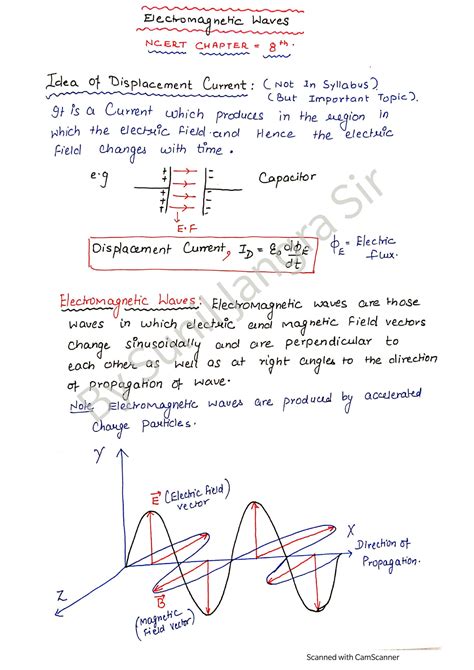 Electromagnetic Waves
NCERT CHAPTER = 8th.
Idea of Displacement Current: (Not In Syllabus)
(But Important Topic).
It is a Current which produces in the region in
which the electric field and Hence the electric
field changes with time.
e.g
Capacitor
+ + + + + +
- - - - - -
E.F
Displacement Current, I_D = ε₀ dϕ_E/dt
ϕ_E = Electric
flux.
Electromagnetic Waves: Electromagnetic waves are those
waves in which electric and magnetic field vectors
change sinusoidally and are perpendicular to
each other as well as at right angles to the direction
of propagation of wave.
Note: Electromagnetic waves are produced by accelerated
Charge Particles.
Y
E⃗ (Electric field)
vector
X
Direction of
Propagation.
Z
B⃗
(Magnetic
Field vector)
By Sunil Jangra Sir
Scanned with CamScanner